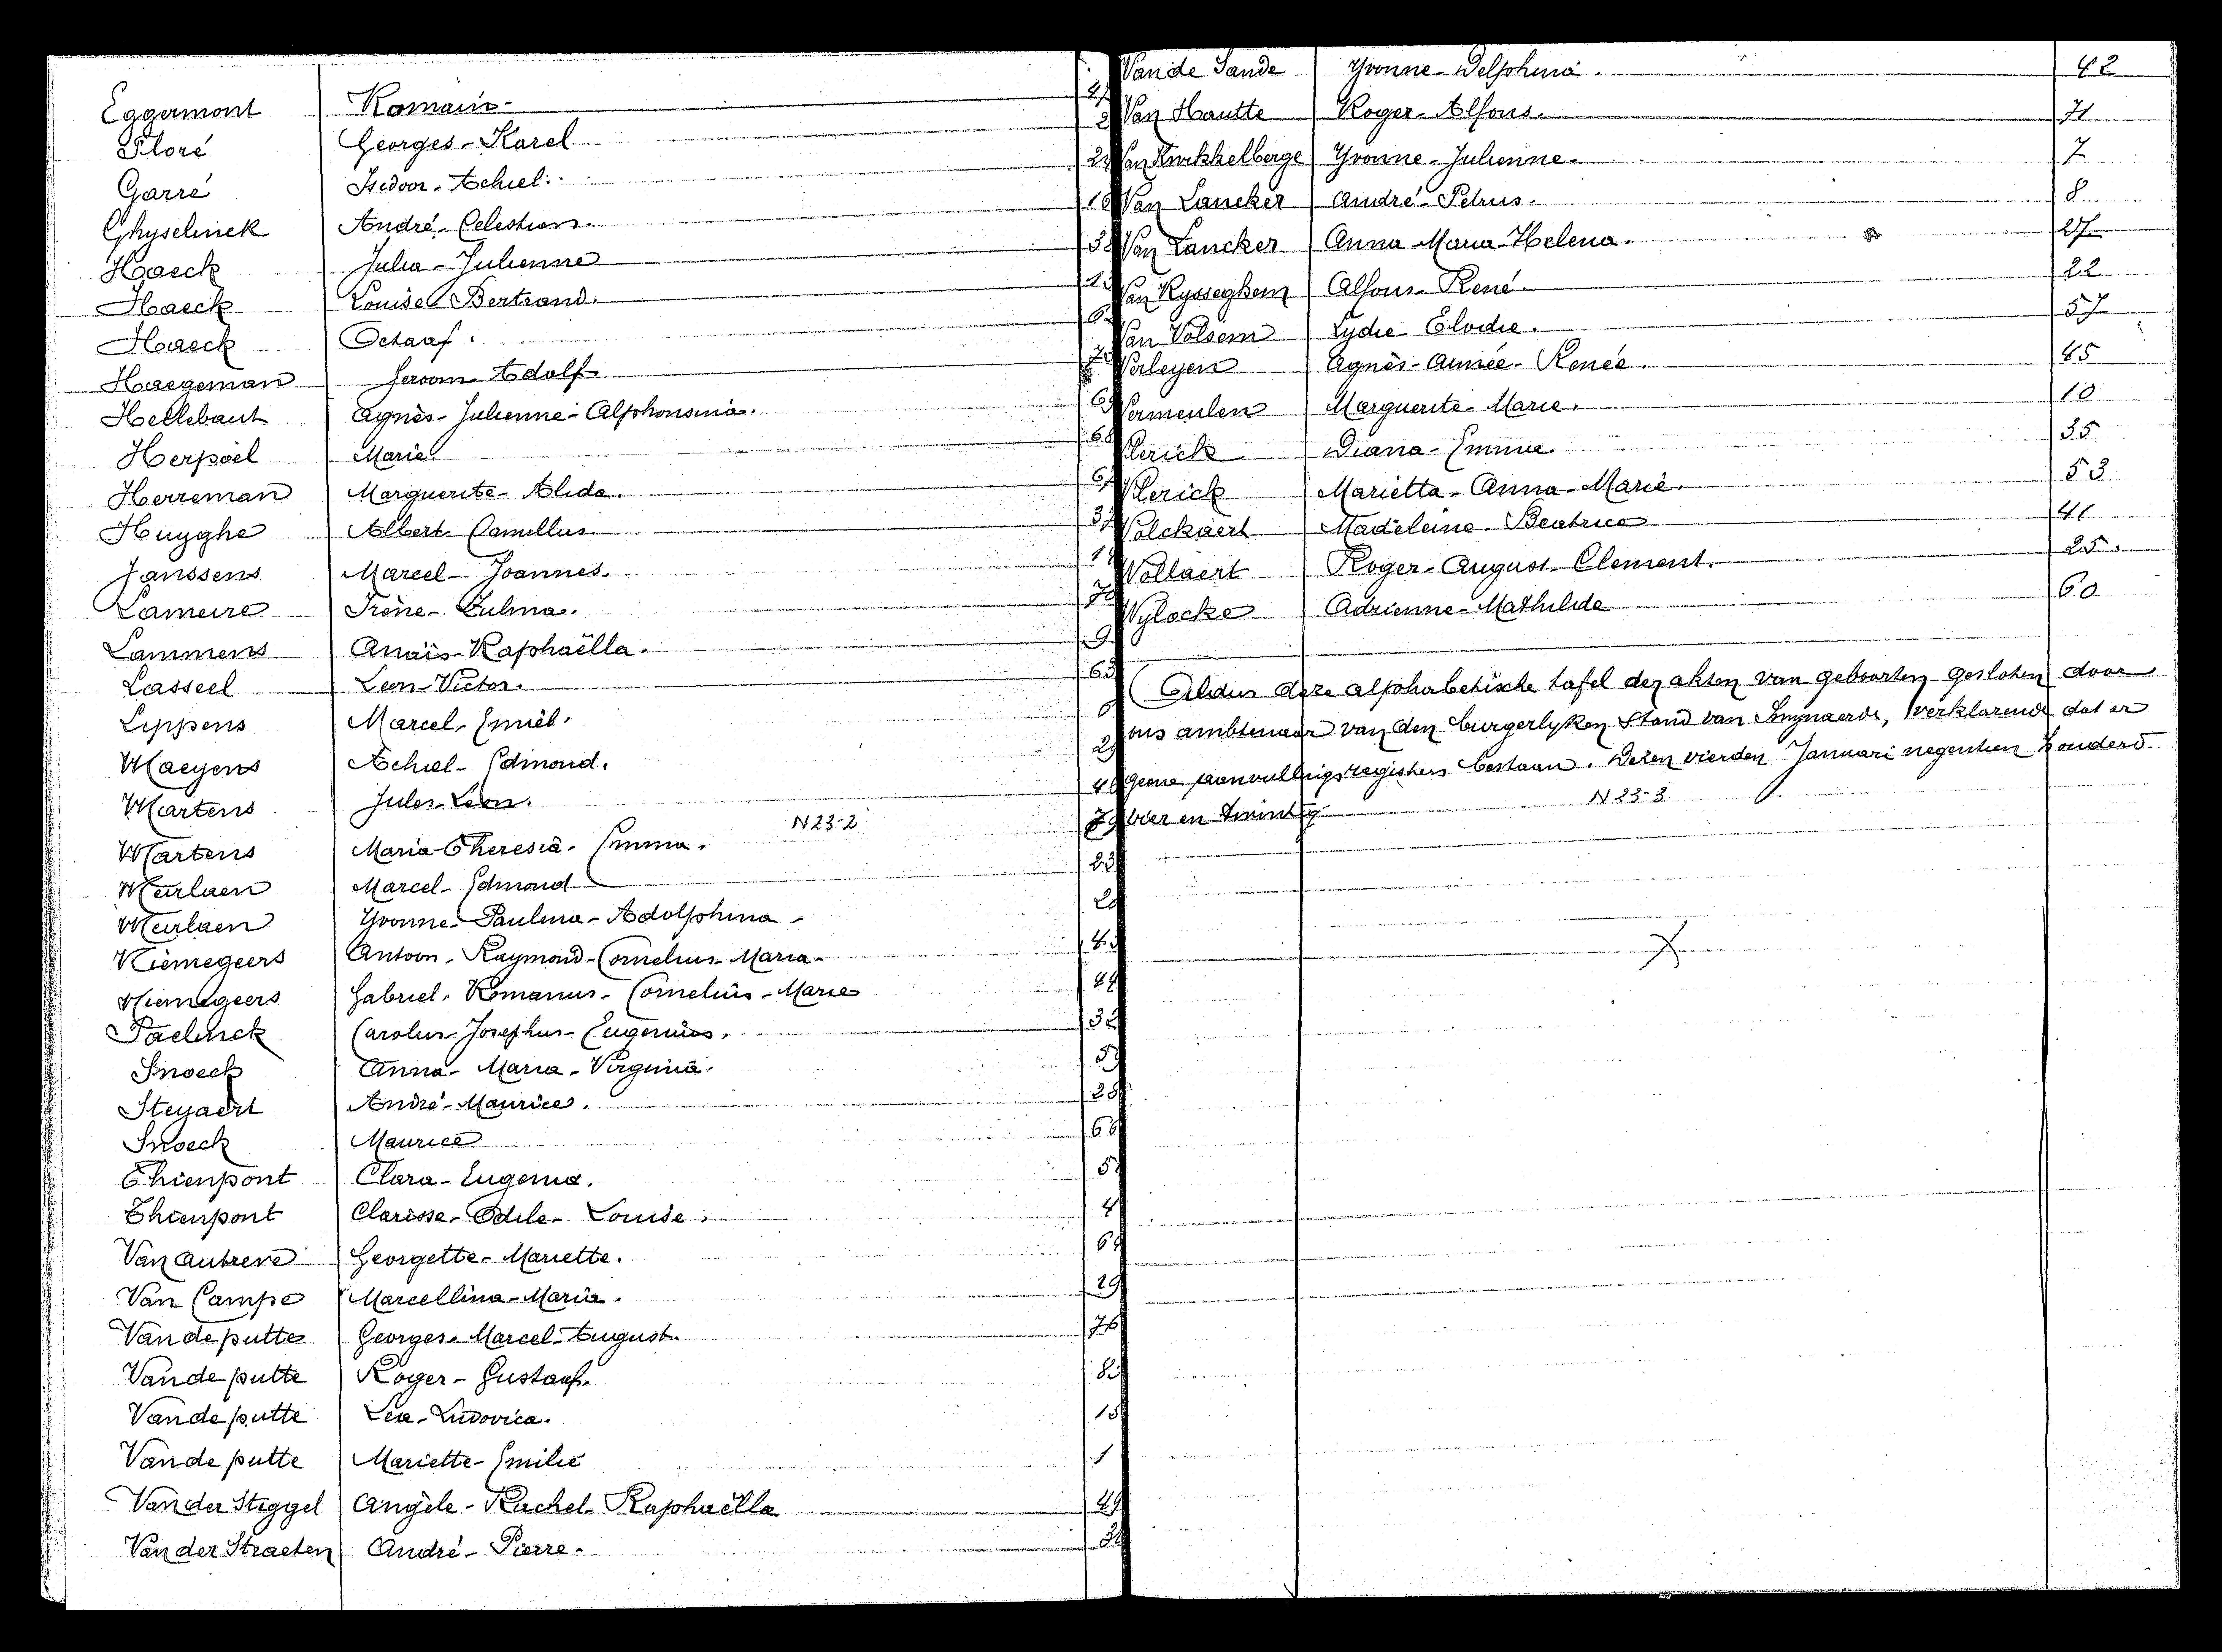 Eggermont Romain
Floré Georges - Karel
Garré Isidoor - Achiel
Ghyselinck André - Celestien
Haeck Julia - Julienne
Haeck Louise Bertrand.
Haeck Octaaf.
Haegeman Jeroom Adolf
Hellebaut Agnès - Julienne - Alphonsina.
Herpoel Marie
Herreman Marguerite - Alida.
Huyghe Albert Camillus
Janssens Marcel - Joannes.
Lameire Irène - Zulma.
Lammens Anaïs - Raphaëlla.
Lasseel Leon - Victor.
Lippens Marcel - Emiel.
Maeyens Achiel - Edmond.
Martens Jules Leon.
N 23-2
Martens Maria - Theresia - Emma. 23
Meirlaen Marcel - Edmond
Meirlaen Yvonne - Paulina - Adolphina
Niemegeers Antoon - Raymond - Cornelius - Maria
Niemegeers Gabriel - Romanus - Cornelius - Marie
Paelinck Carolus - Josephus - Eugenius.
Snoeck Anna - Maria - Virginia.
Steyaert André - Maurice.
Snoeck Maurice
Thienpont Clara - Eugenia.
Thienpont Clarisse - Odile - Louise.
Van Autreve Georgette - Mariette.
Van Campe Marcellina - Maria. 29
Van de putte Georges - Marcel - August. 76
Van de putte Roger - Gustaaf.
Van de putte Lea - Ludovica.
Van de putte Mariette - Emilie 1
Van der Steggel Angèle - Rachel - Raphaëlla
Van der Straeten André - Pierre.
Van de Sande Yvonne - Delphina. 42
Van Hautte Roger - Alfons. 71
Van Kerkhelberge Yvonne - Julienne 7
Van Lancker André - Petrus. 8
Van Lancker Anna - Maria - Helena. 27
Van Rysseghem Alfons - René 22
Van Volsem Lydie - Elodie. 57
Verleyen Agnès - Aimée - Renée. 45
Vermeulen Marguerite - Marie. 10
Vlerick Diana - Emma. 35
Vlerick Marietta - Anna - Marie. 53
Volckaert Madeleine - Beatrice
Vollaert Roger - August - Clement. 25.
Wylocke Adrienne - Mathilde 60
Aldus deze alphabetische tafel der akten van geboorten gesloten door
ons ambtenaar van den burgerlyken Stand van Smynaerde, verklarende dat er
geene aanvullingsregisters bestaan. Dezen vierden Januari negentien honderd
vier en twintig
N 23-3.